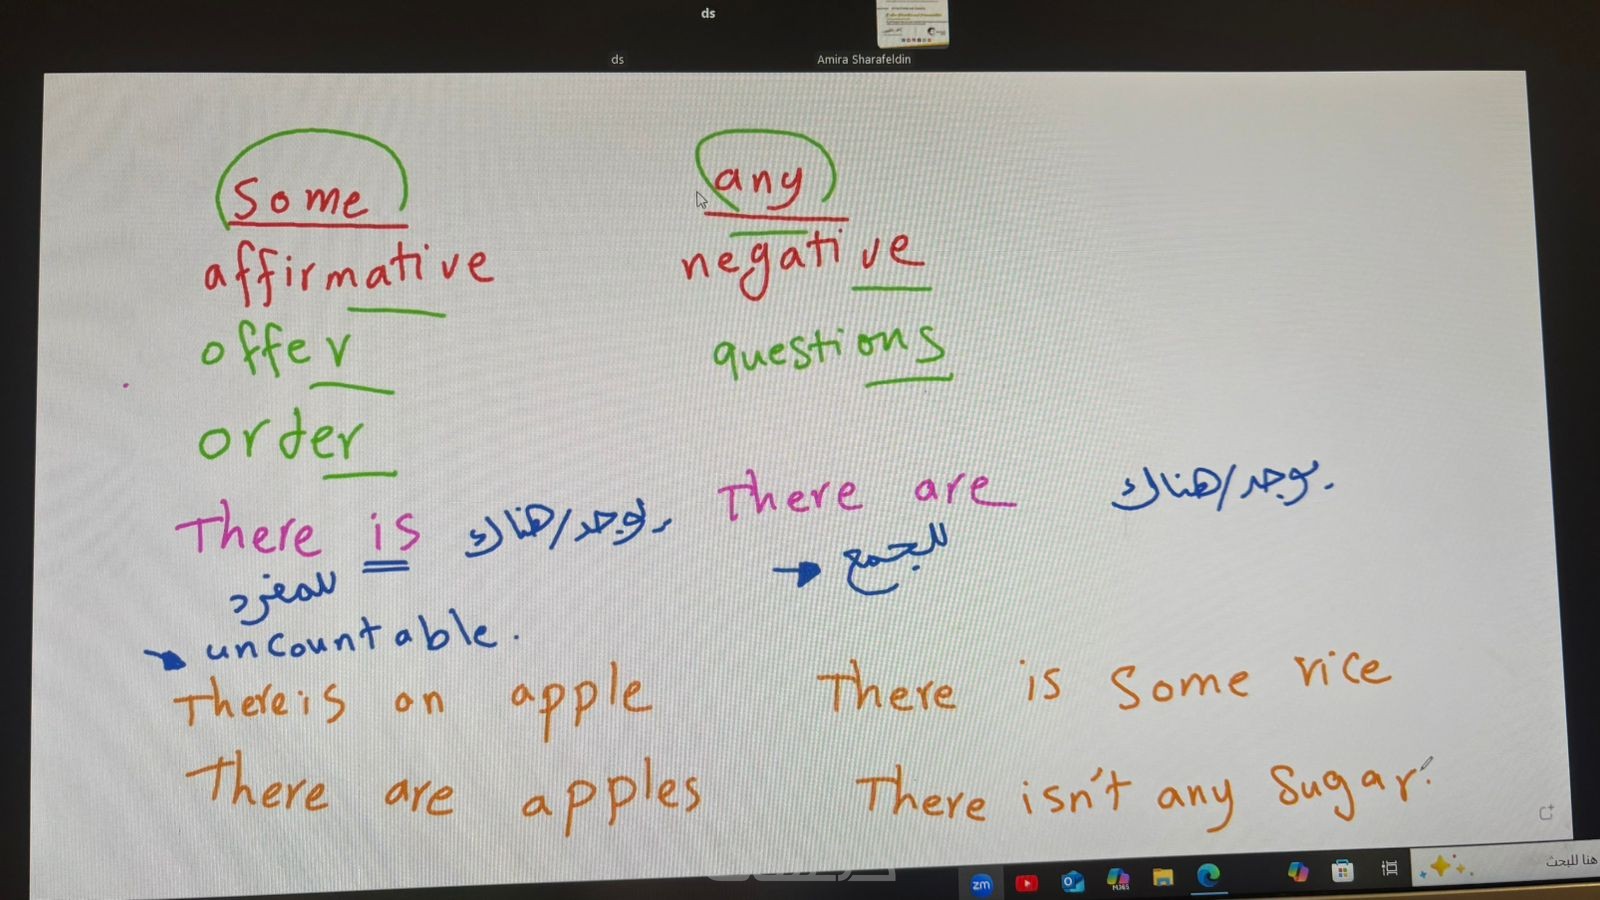 ds
ds
Amira Sharafeldin
Some
any
affirmative
negative
offer
questions
order
There is يوجد/هناك
There are يوجد/هناك.
للمفرد
للجمع
uncountable.
There is an apple
There is some rice
There are apples
There isn't any sugar.
zm
M365
هنا للبحث